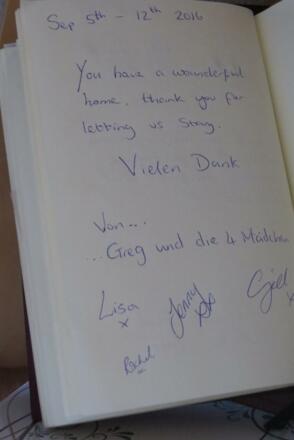 Sep 5th - 12th 2016
You have a wounderful
home. thank you for
letting us Stay.
Vielen Dank
Von...
...Greg und die 4 Mädchen
Lisa
x
Jenny xx
Gill
x
Rachel